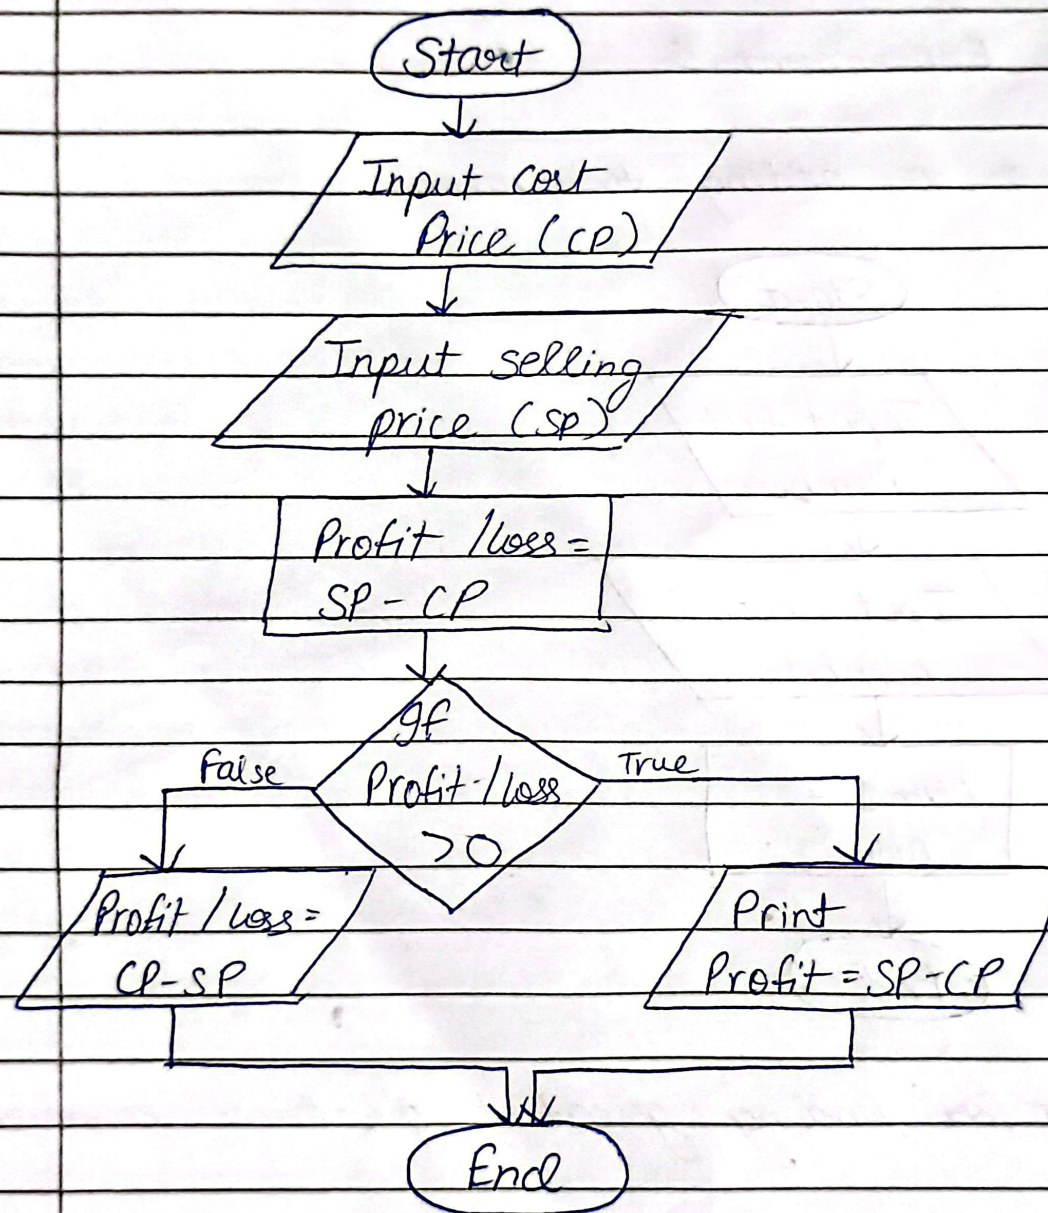 Start
Input cost
Price (CP)
Input selling
price (SP)
Profit /loss =
SP - CP
If
Profit /loss
>0
False
True
Profit / Loss =
CP-SP
Print
Profit = SP-CP
End